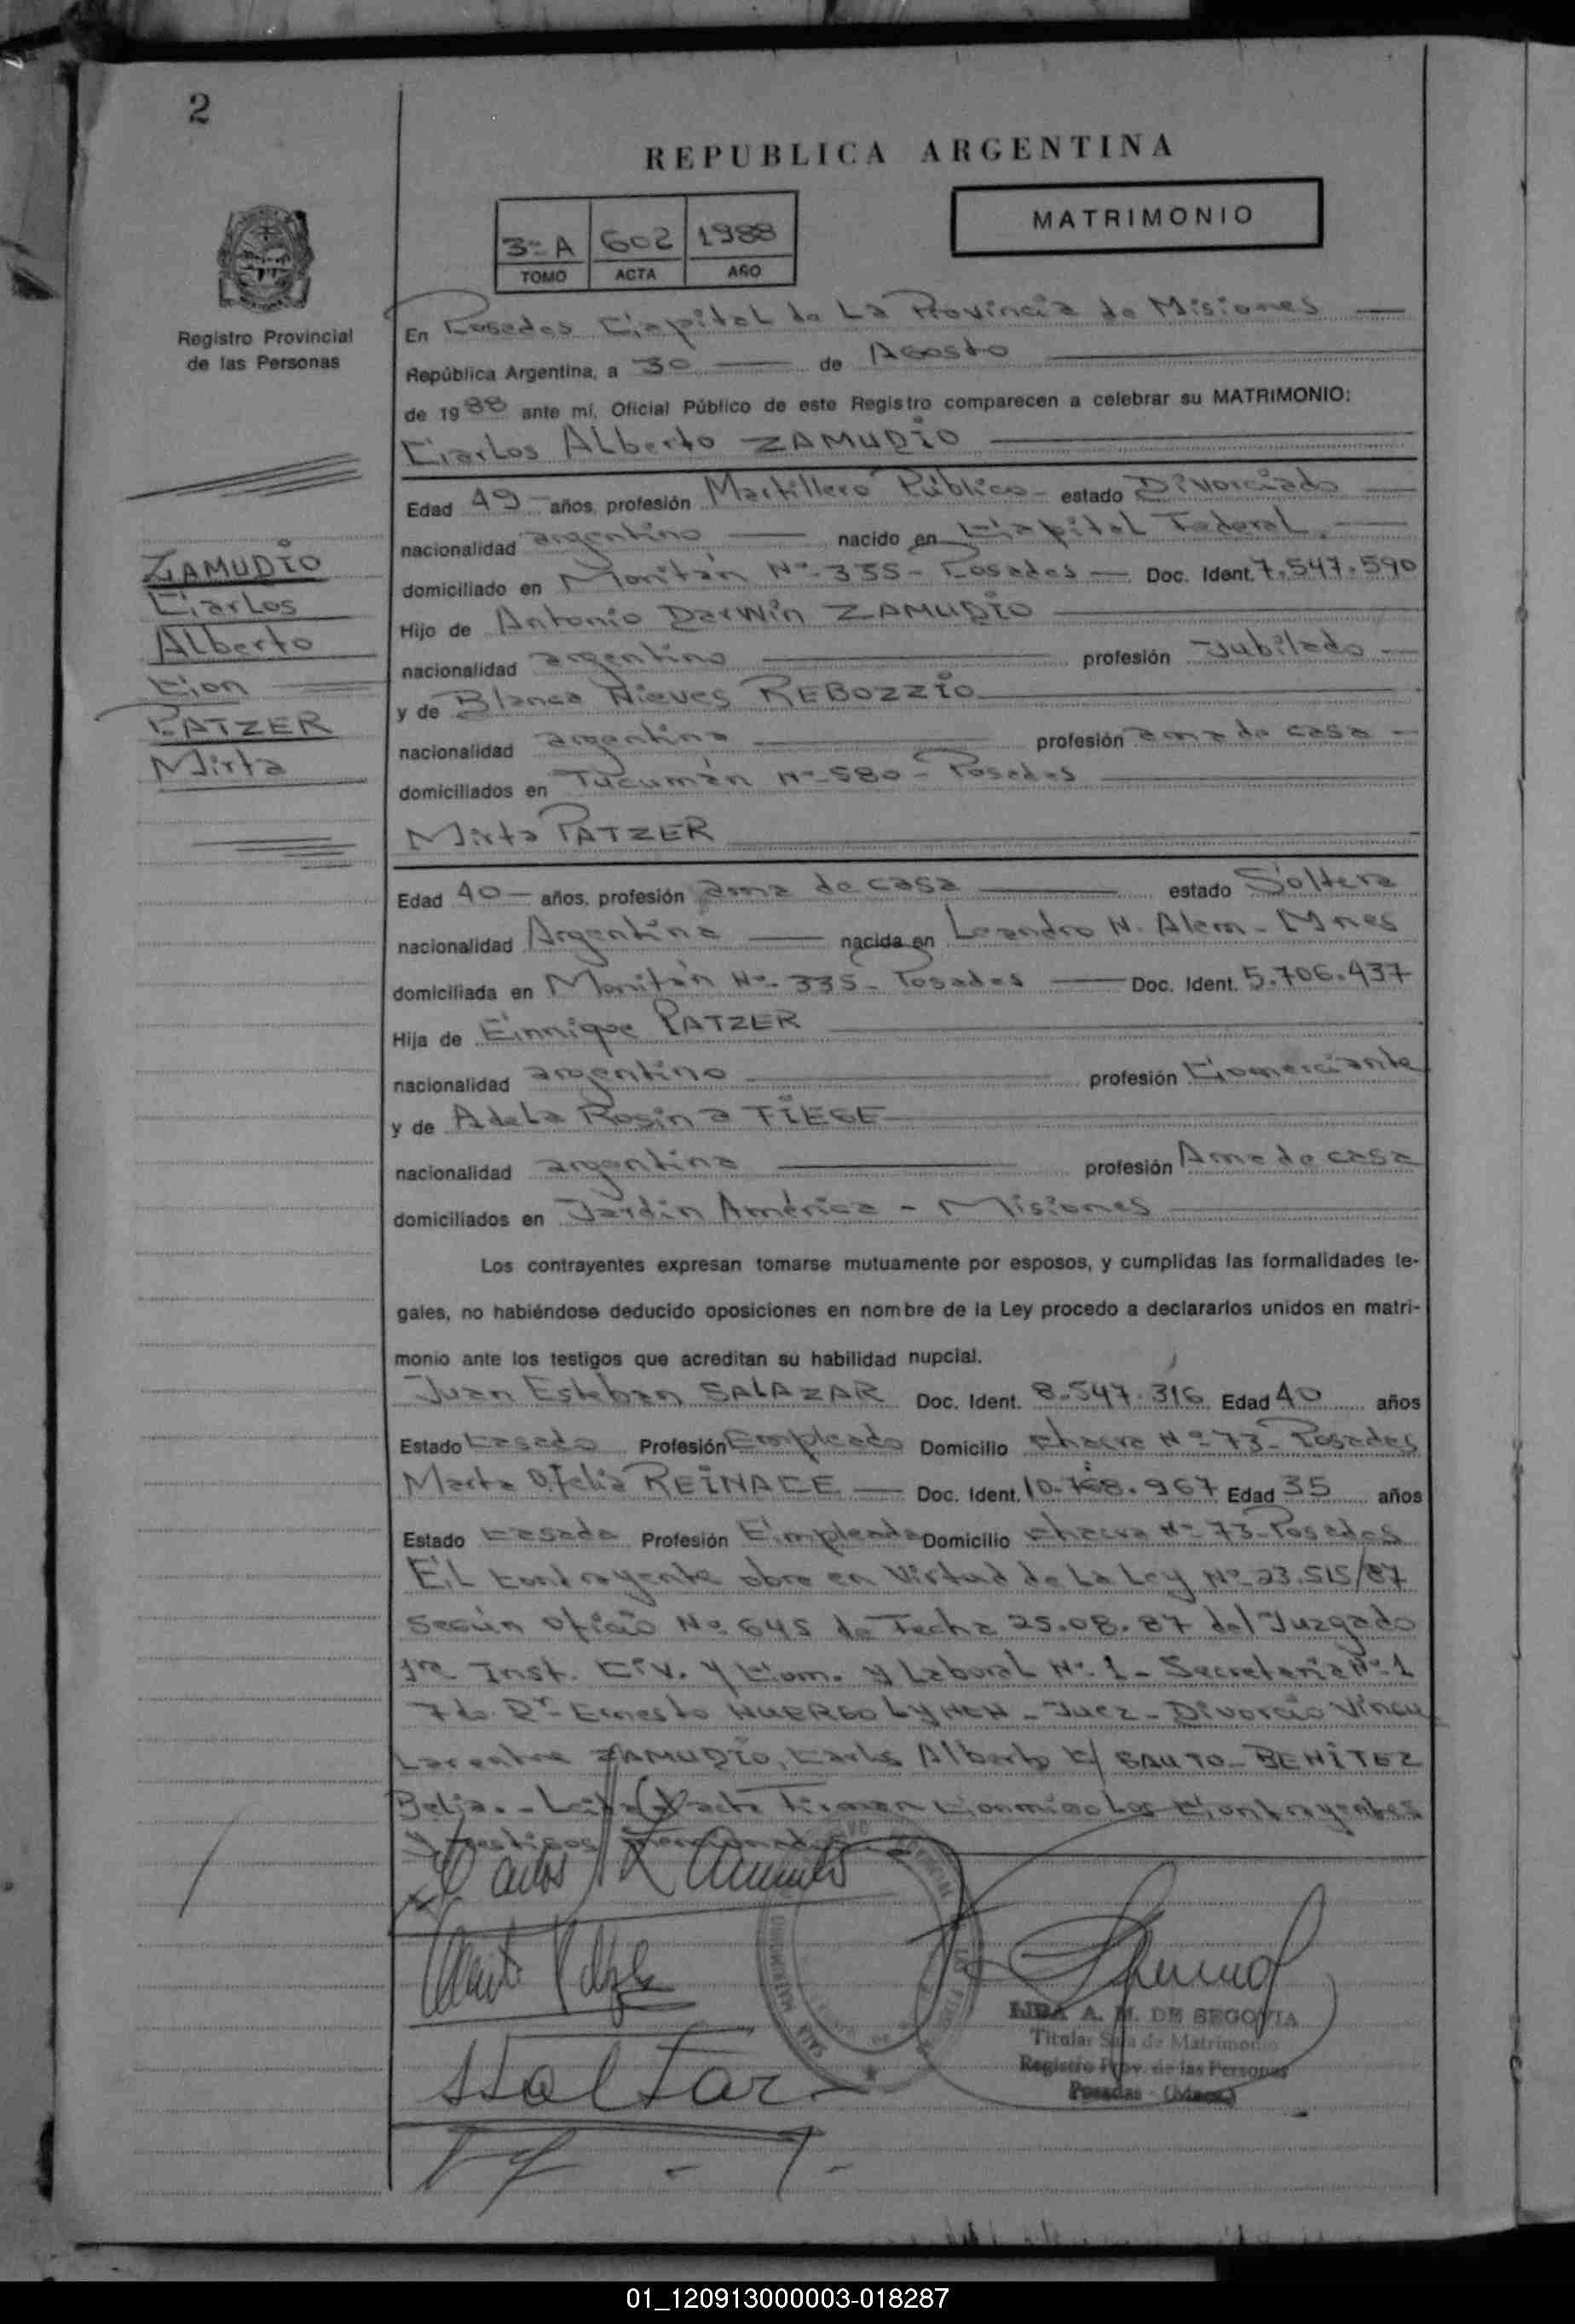 2
REPUBLICA ARGENTINA
MATRIMONIO
3º A 602 1988
TOMO ACTA AÑO
Registro Provincial
de las Personas
En Posadas Capital de La Provincia de Misiones
República Argentina, a 30 de Agosto
de 1988 ante mí, Oficial Público de este Registro comparecen a celebrar su MATRIMONIO:
Carlos Alberto ZAMUDIO
Edad 49 años, profesión Martillero Público estado Divorciado
nacionalidad argentino nacido en Capital Federal.
domiciliado en Nº 335 - Posadas Doc. Ident. 7.547.590
Hijo de Antonio Darwin ZAMUDIO
nacionalidad argentino profesión Jubilado
y de Blanca Nieves REBOZZIO
nacionalidad argentina profesión ama de casa
domiciliados en Tucumán Nº 580 - Posadas
Mirta PATZER
ZAMUDIO
Carlos
Alberto
Con
PATZER
Mirta
Edad 40 años, profesión ama de casa estado Soltera
nacionalidad Argentina nacida en Leandro N. Alem - Mnes
domiciliada en Nº 335 - Posadas Doc. Ident. 5.706.437
Hija de Enrique PATZER
nacionalidad argentino profesión Comerciante
y de Adela Rosina FIEGE
nacionalidad argentina profesión Ama de casa
domiciliados en Jardín América - Misiones
Los contrayentes expresan tomarse mutuamente por esposos, y cumplidas las formalidades le-
gales, no habiéndose deducido oposiciones en nombre de la Ley procedo a declararlos unidos en matri-
monio ante los testigos que acreditan su habilidad nupcial.
Juan Esteban SALAZAR Doc. Ident. 8.547.316 Edad 40 años
Estado Casado Profesión Empleado Domicilio chacra Nº 73 - Posadas
Marta Ofelia REINACE Doc. Ident. 10.768.967 Edad 35 años
Estado Casada Profesión Empleada Domicilio chacra Nº 73 - Posadas
El contrayente obra en Virtud de La Ley Nº 23.515/87
Según Oficio Nº 645 de Fecha 25.08.87 del Juzgado
1ra Inst. Civ. y Com. y Laboral Nº 1 - Secretaria Nº 1
Fdo. Dr. Ernesto HUERGO LYNCH - Juez - Divorcio Vincu
Lar entre ZAMUDIO, Carlos Alberto c/ BENITEZ
Delia. - Leida Acta Firman Conmigo Los Contrayentes
y testigos mencionados
LIDA A. M. DE SEGOVIA
Titular Sala de Matrimonio
Registro Prov. de las Personas
Posadas - (Mnes.)
01_120913000003-018287